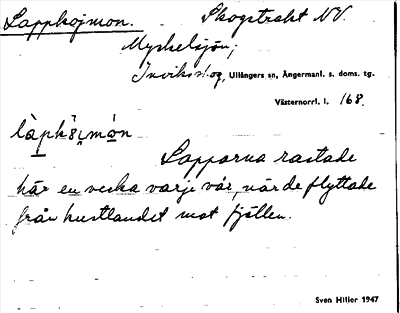 Lappkojmon. Skogstrakt NV.
Myckelsjön;
Inviksskog, Ullångers sn, Ångermanl. s. doms. tg.
Västernorrl. l. 168.
Lapparna rastade
här en vecka varje vår, när de flyttade
från kustlandet mot fjällen.
Sven Hiller 1947